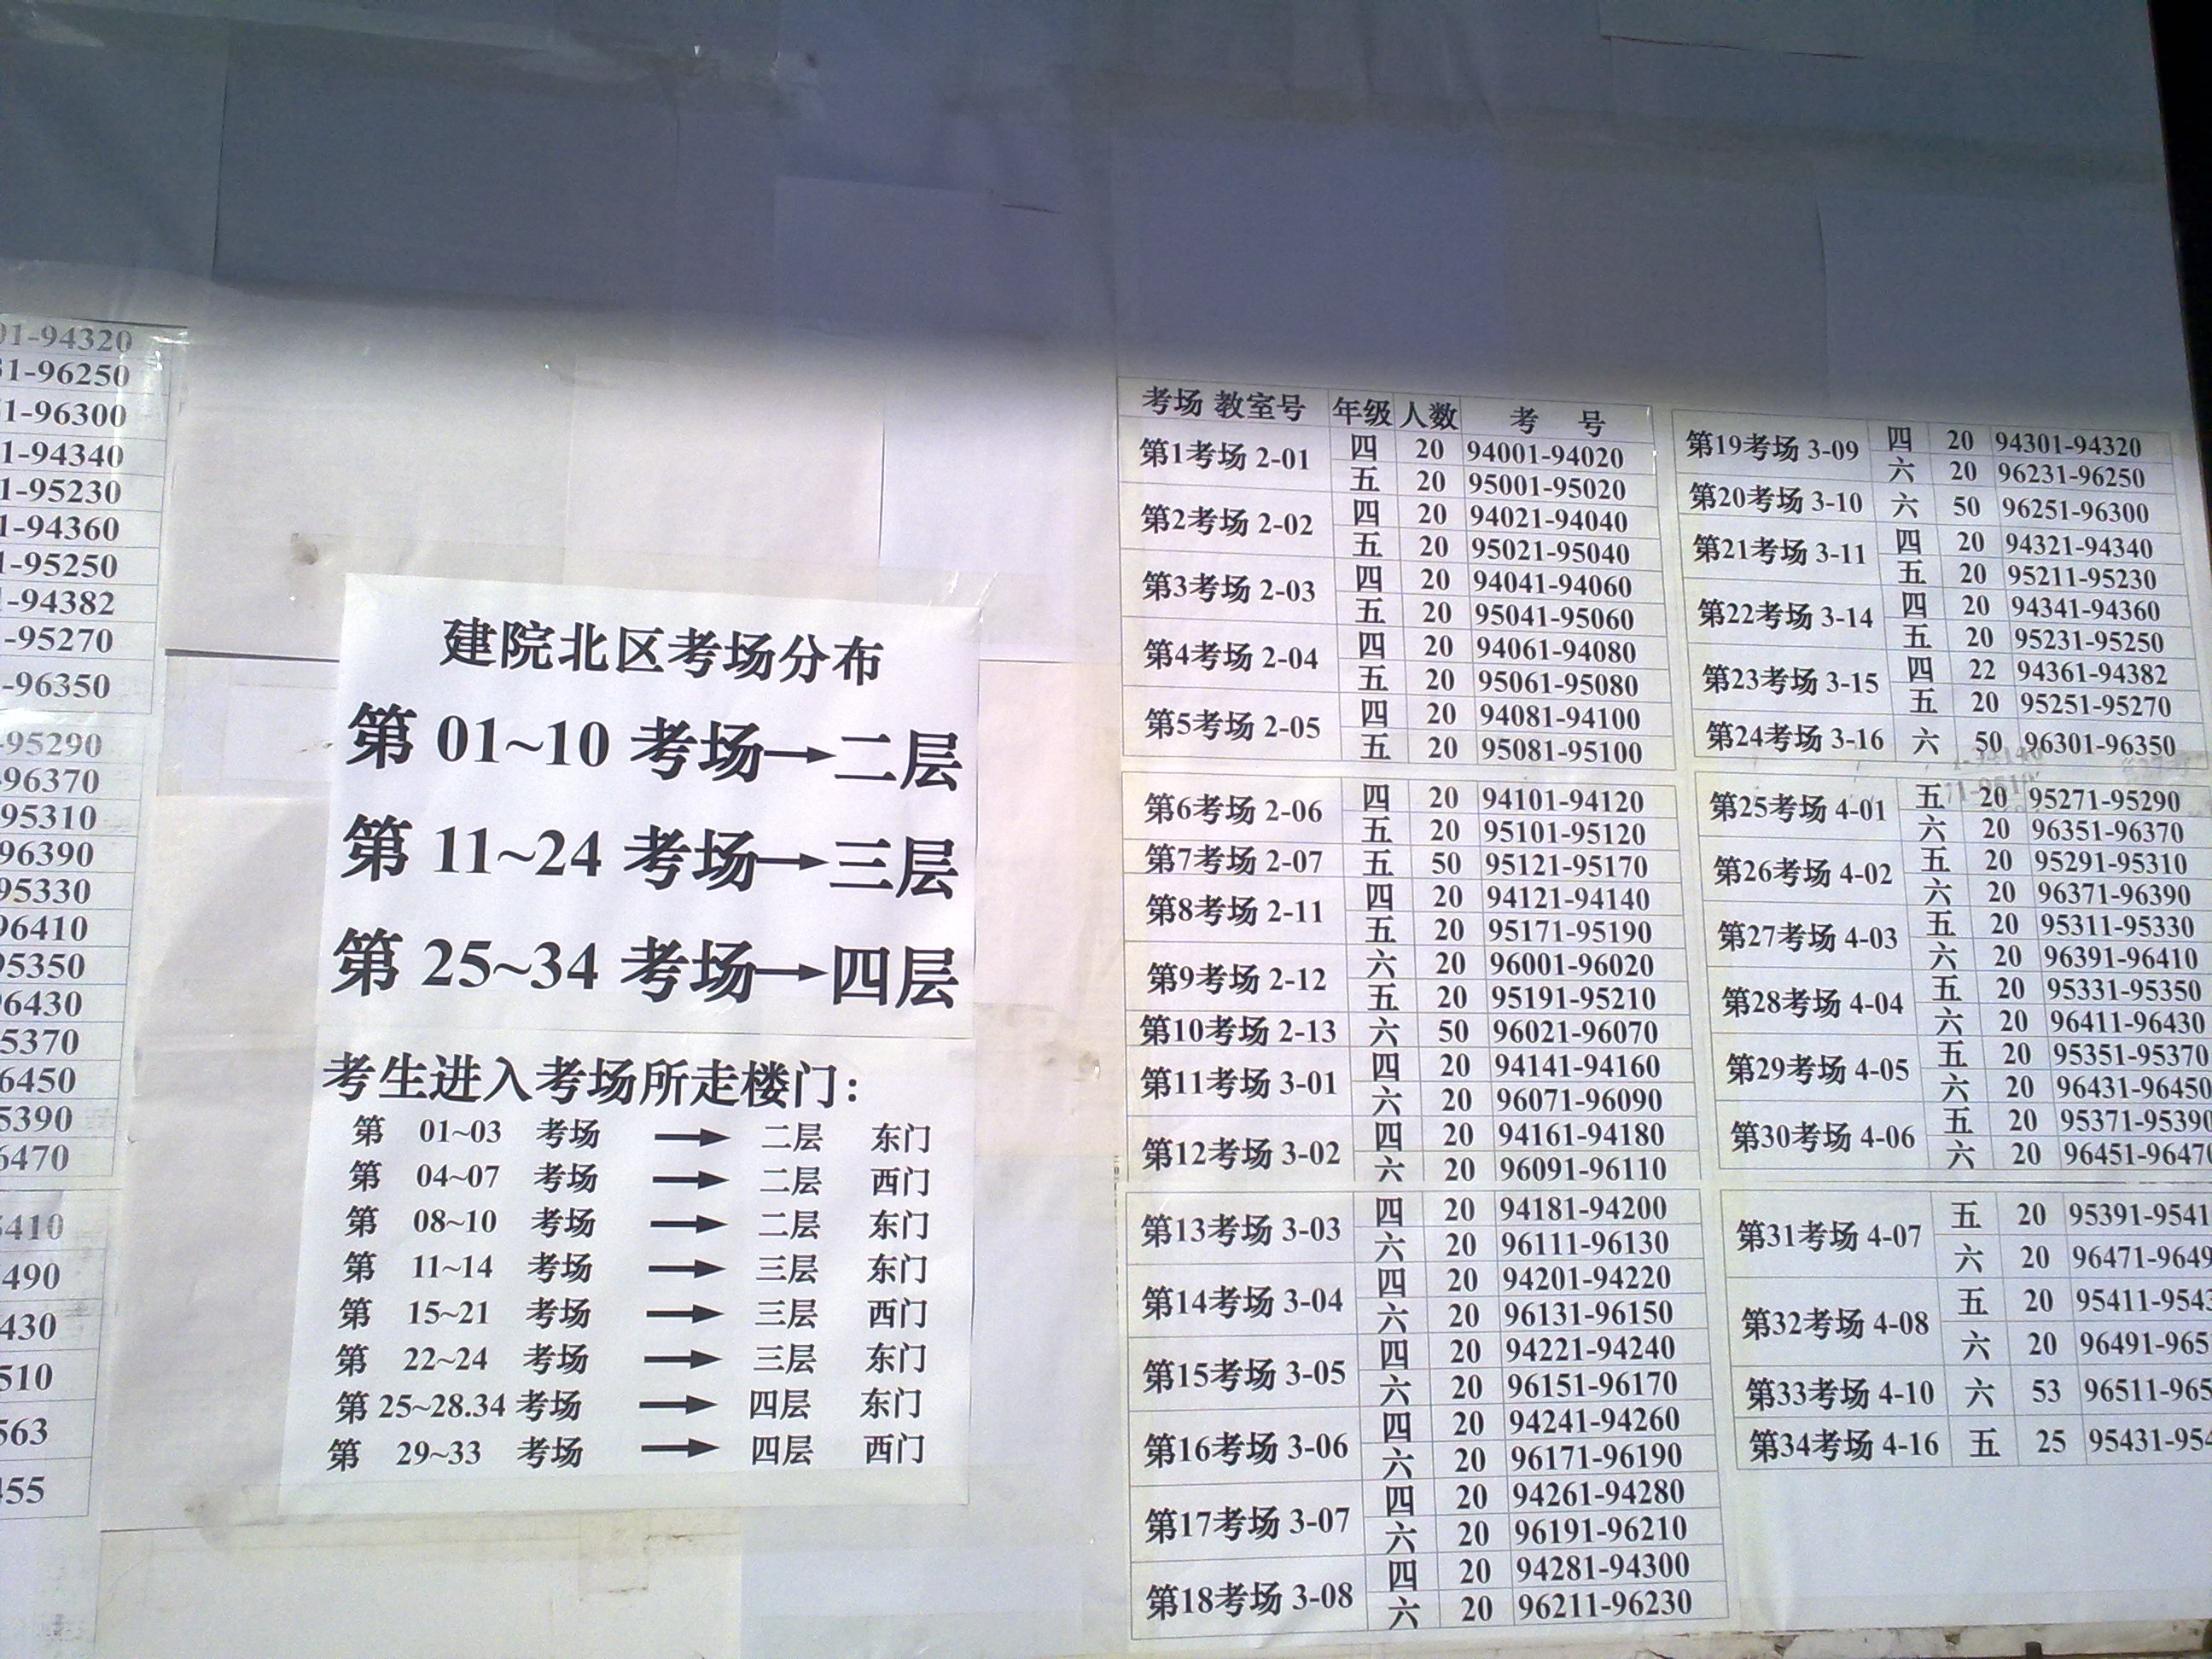 01-94320
31-96250
1-96300
1-94340
1-95230
1-94360
1-95250
1-94382
-95270
-96350
-95290
-96370
95310
96390
95330
96410
95350
96430
5370
6450
5390
6470
5410
490
430
510
563
455
建院北区考场分布
第 01~10 考场→二层
第 11~24 考场→三层
第 25~34 考场→四层
考生进入考场所走楼门：
第 01~03 考场 → 二层 东门
第 04~07 考场 → 二层 西门
第 08~10 考场 → 二层 东门
第 11~14 考场 → 三层 东门
第 15~21 考场 → 三层 西门
第 22~24 考场 → 三层 东门
第 25~28.34 考场 → 四层 东门
第 29~33 考场 → 四层 西门
考场 教室号 年级 人数 考 号
第1考场 2-01 四 20 94001-94020
五 20 95001-95020
第2考场 2-02 四 20 94021-94040
五 20 95021-95040
第3考场 2-03 四 20 94041-94060
五 20 95041-95060
第4考场 2-04 四 20 94061-94080
五 20 95061-95080
第5考场 2-05 四 20 94081-94100
五 20 95081-95100
第6考场 2-06 四 20 94101-94120
五 20 95101-95120
第7考场 2-07 五 50 95121-95170
第8考场 2-11 四 20 94121-94140
五 20 95171-95190
第9考场 2-12 六 20 96001-96020
五 20 95191-95210
第10考场 2-13 六 50 96021-96070
第11考场 3-01 四 20 94141-94160
六 20 96071-96090
第12考场 3-02 四 20 94161-94180
六 20 96091-96110
第13考场 3-03 四 20 94181-94200
六 20 96111-96130
第14考场 3-04 四 20 94201-94220
六 20 96131-96150
第15考场 3-05 四 20 94221-94240
六 20 96151-96170
第16考场 3-06 四 20 94241-94260
六 20 96171-96190
第17考场 3-07 四 20 94261-94280
六 20 96191-96210
第18考场 3-08 四 20 94281-94300
六 20 96211-96230
第19考场 3-09 四 20 94301-94320
六 20 96231-96250
第20考场 3-10 六 50 96251-96300
第21考场 3-11 四 20 94321-94340
五 20 95211-95230
第22考场 3-14 四 20 94341-94360
五 20 95231-95250
第23考场 3-15 四 22 94361-94382
五 20 95251-95270
第24考场 3-16 六 50 96301-96350
第25考场 4-01 五 20 95271-95290
六 20 96351-96370
第26考场 4-02 五 20 95291-95310
六 20 96371-96390
第27考场 4-03 五 20 95311-95330
六 20 96391-96410
第28考场 4-04 五 20 95331-95350
六 20 96411-96430
第29考场 4-05 五 20 95351-95370
六 20 96431-96450
第30考场 4-06 五 20 95371-95390
六 20 96451-96470
第31考场 4-07 五 20 95391-9541
六 20 96471-9649
第32考场 4-08 五 20 95411-9543
六 20 96491-965
第33考场 4-10 六 53 96511-965
第34考场 4-16 五 25 95431-954